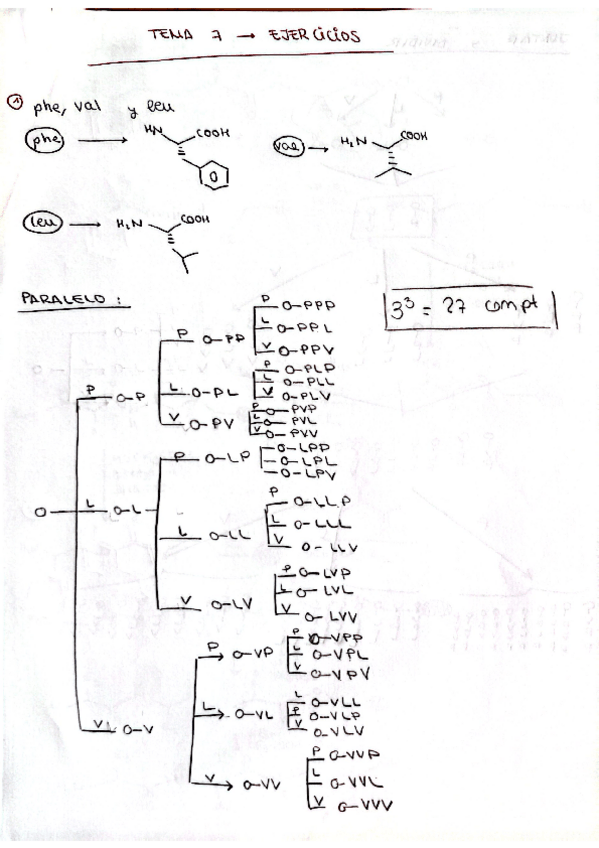 TEMA 7 → EJERCICIOS
① phe, val y leu
phe → HN COOH
val → H₂N COOH
leu → H₂N COOH
PARALELO :
3³ = 27 compt
P O-PPP
P O-PP L O-PPL
V O-PPV
P O-PLP
P O-P L O-PL L O-PLL
V O-PLV
P O-PVP
V O-PV L O-PVL
V O-PVV
O-LPP
P O-LP O-LPL
O-LPV
P O-LLP
O L O-L L O-LL L O-LLL
V O-LLV
P O-LVP
V O-LV L O-LVL
V O-LVV
P O-VPP
P O-VP L O-VPL
V O-VPV
L O-VLL
V O-V L O-VL P O-VLP
V O-VLV
P O-VVP
V O-VV L O-VVL
V O-VVV